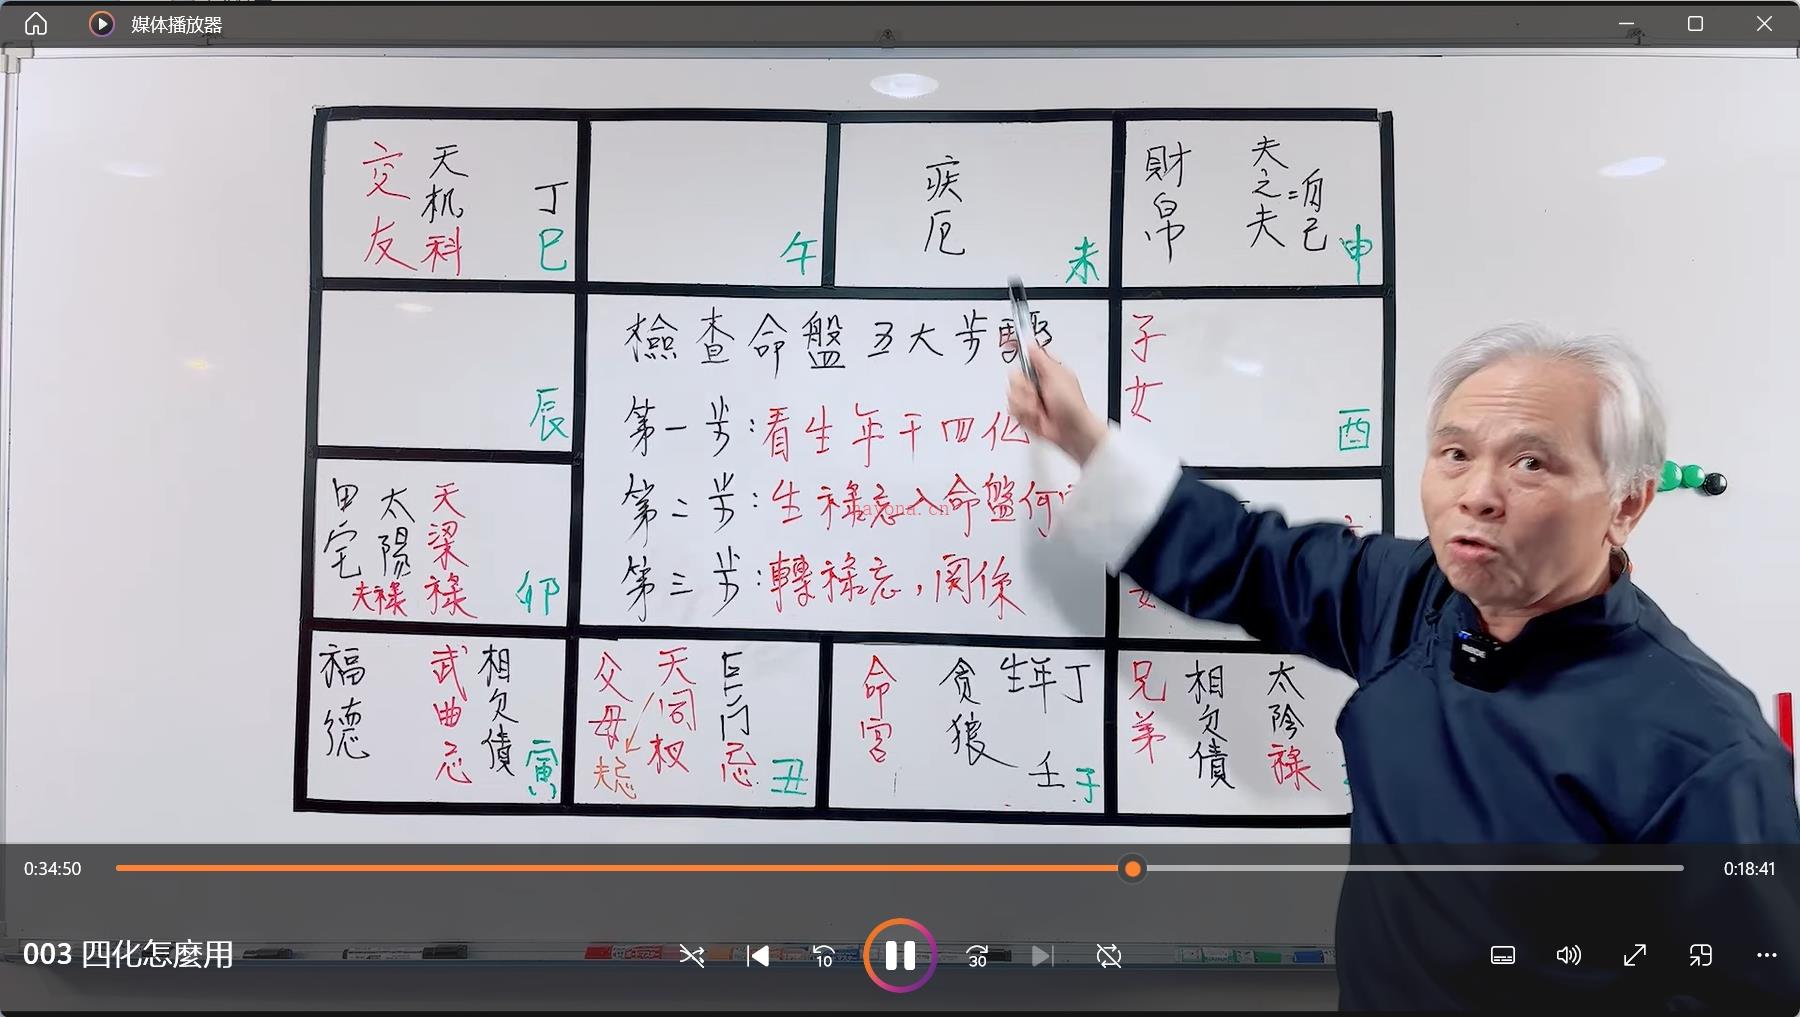 媒体播放器
交友
天机科
丁
巳
午
疾厄
未
財帛
夫之夫=自己
申
檢查命盤五大步驟
第一步:看生年干四化
第二步:生祿忘入命盤何
第三步:轉祿忘,関係
nayona.cn
辰
子女
酉
田宅
太陽
夫祿
天梁祿
卯
福德
武曲忌
相欠債
寅
父母
夫忌
天同权
巨门忌
丑
命宮
貪狼
生年丁
壬子
兄弟
相欠債
太陰祿
0:34:50
0:18:41
003 四化怎麼用
10
30